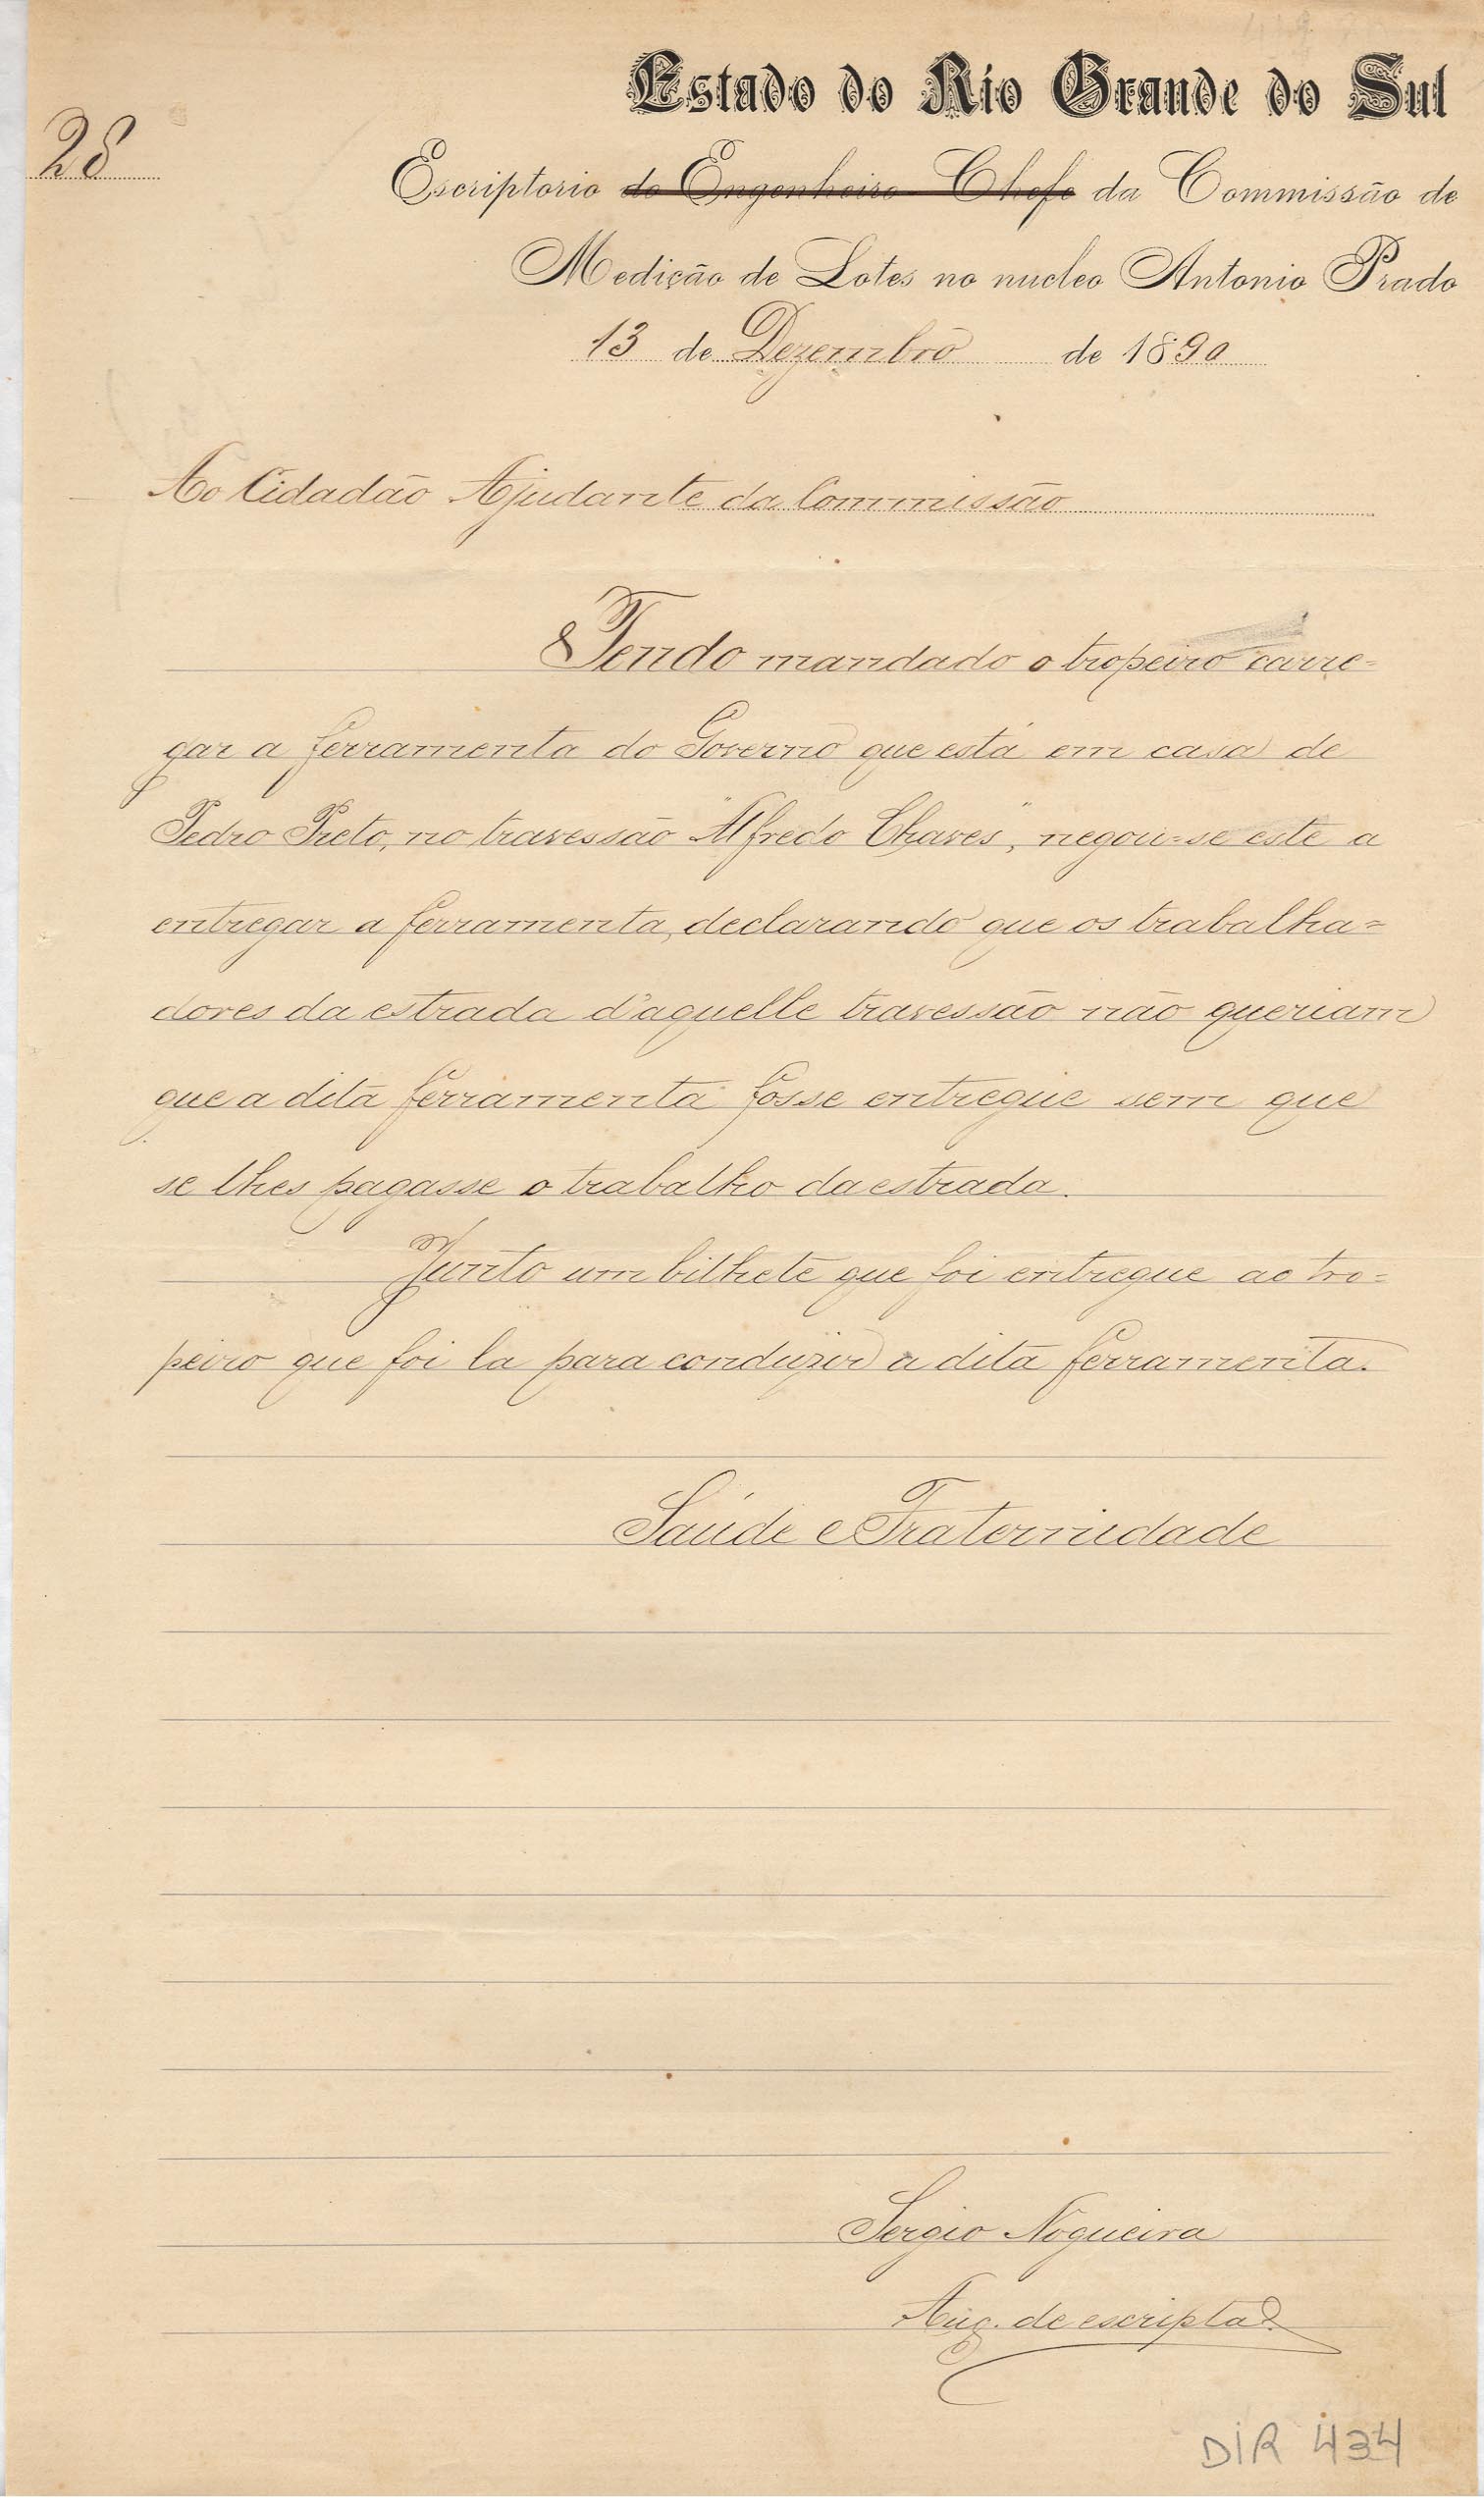 Estado do Rio Grande do Sul
28
Escriptorio do Engenheiro Chefe da Commissão de
Medição de Lotes no nucleo Antonio Prado
13 de Dezembro de 1890
Ao Cidadão Ajudante da Commissão
Tendo mandado o tropeiro carre=
gar a ferramenta do Governo que está em casa de
Pedro Preto, no travessão "Alfredo Chaves", negou-se este a
entregar a ferramenta, declarando que os trabalha=
dores da estrada d'aquelle travessão não queriam
que a dita ferramenta fosse entregue sem que
se lhes pagasse o trabalho da estrada.
Junto um bilhete que foi entregue ao tro=
peiro que foi la para conduzir a dita ferramenta.
Saúde e Fraternidade
Sergio Nogueira
Aux. de escripta
DIR 434